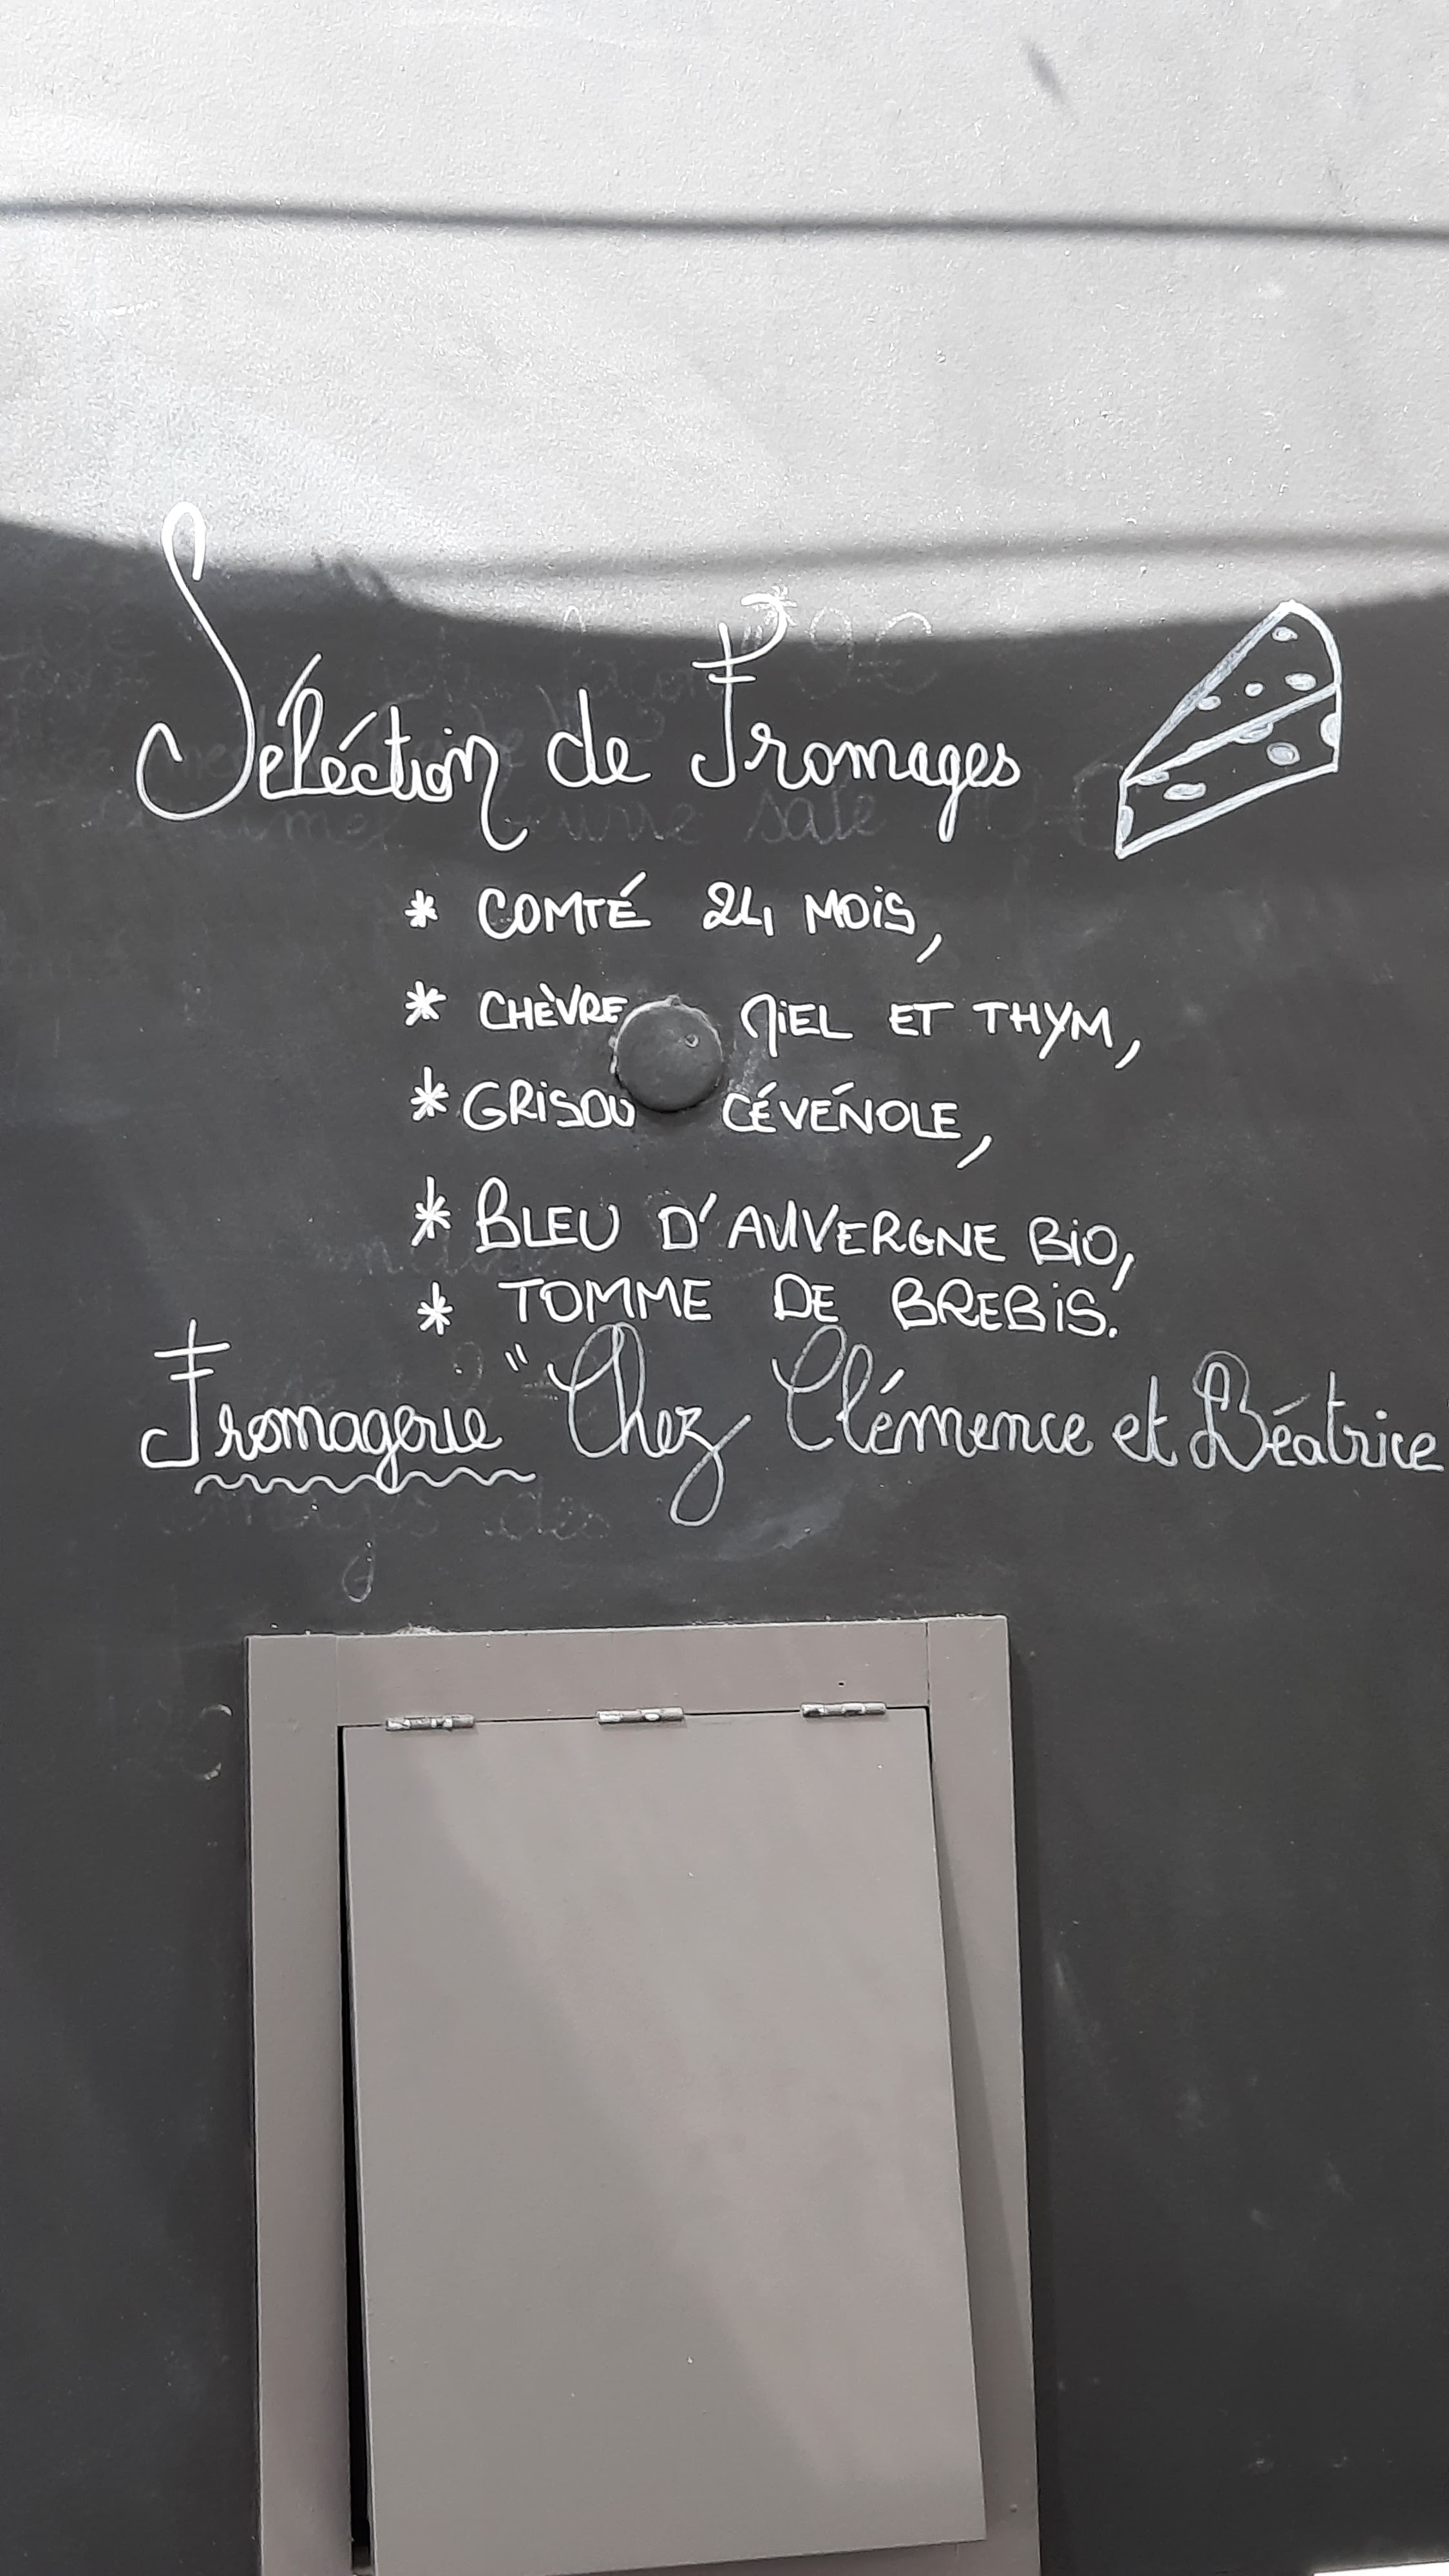 Séléction de Fromages
* COMTÉ 24 MOIS,
* CHÈVRE MIEL ET THYM,
* GRISOU CÉVÉNOLE,
* BLEU D'AUVERGNE BIO,
* TOMME DE BREBIS.
Fromagerie "Chez Clémence et Béatrice